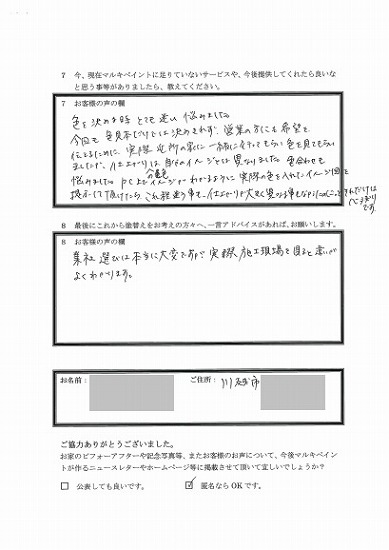 7 今、現在マルキペイントに足りていないサービスや、今後提供してくれたら良いな
と思う事等がありましたら、教えてください。
7 お客様の声の欄
色を決める時 とても迷い 悩みました
今回も 色見本だけでは決めきれず、営業の方にも希望を
伝えるために、実際 近所の家に 一緒に行ってもらい 色を見てもらい
ましたが、仕上がりは 自分のイメージとは異なりました 色合わせも
悩みました PC上でイメージがわかるように 実際の色を入れたイメージ図を
提示して頂けたら
8 最後にこれから塗替えをお考えの方々へ、一言アドバイスがあれば、お願いします。
8 お客様の声の欄
業社 選びは本当に大変ですが 実際、施工現場を見ると違いが
よくわかります。
お名前：
ご住所： 川越市
ご協力ありがとうございました。
お家のビフォーアフターや記念写真等、またお客様のお声について、今後マルキペイン
トが作るニュースレターやホームページ等に掲載させて頂いて宜しいでしょうか？
□ 公表しても良いです。 ☑ 匿名ならOKです。